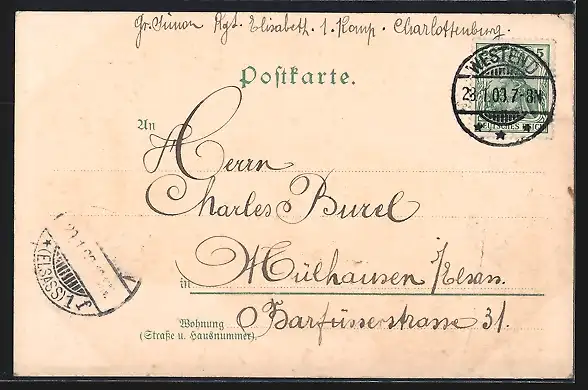 Gr. Simon Rgt. Elisabeth. 1. Komp. Charlottenburg.
5
WESTEND
7-8N.
DEUTSCHES
Postkarte.
An
Herrn
Charles Burel
in Mülhausen Elsass.
(ELSASS) 1 f
Wohnung Barfüsserstrasse 31.
(Straße u. Hausnummer).